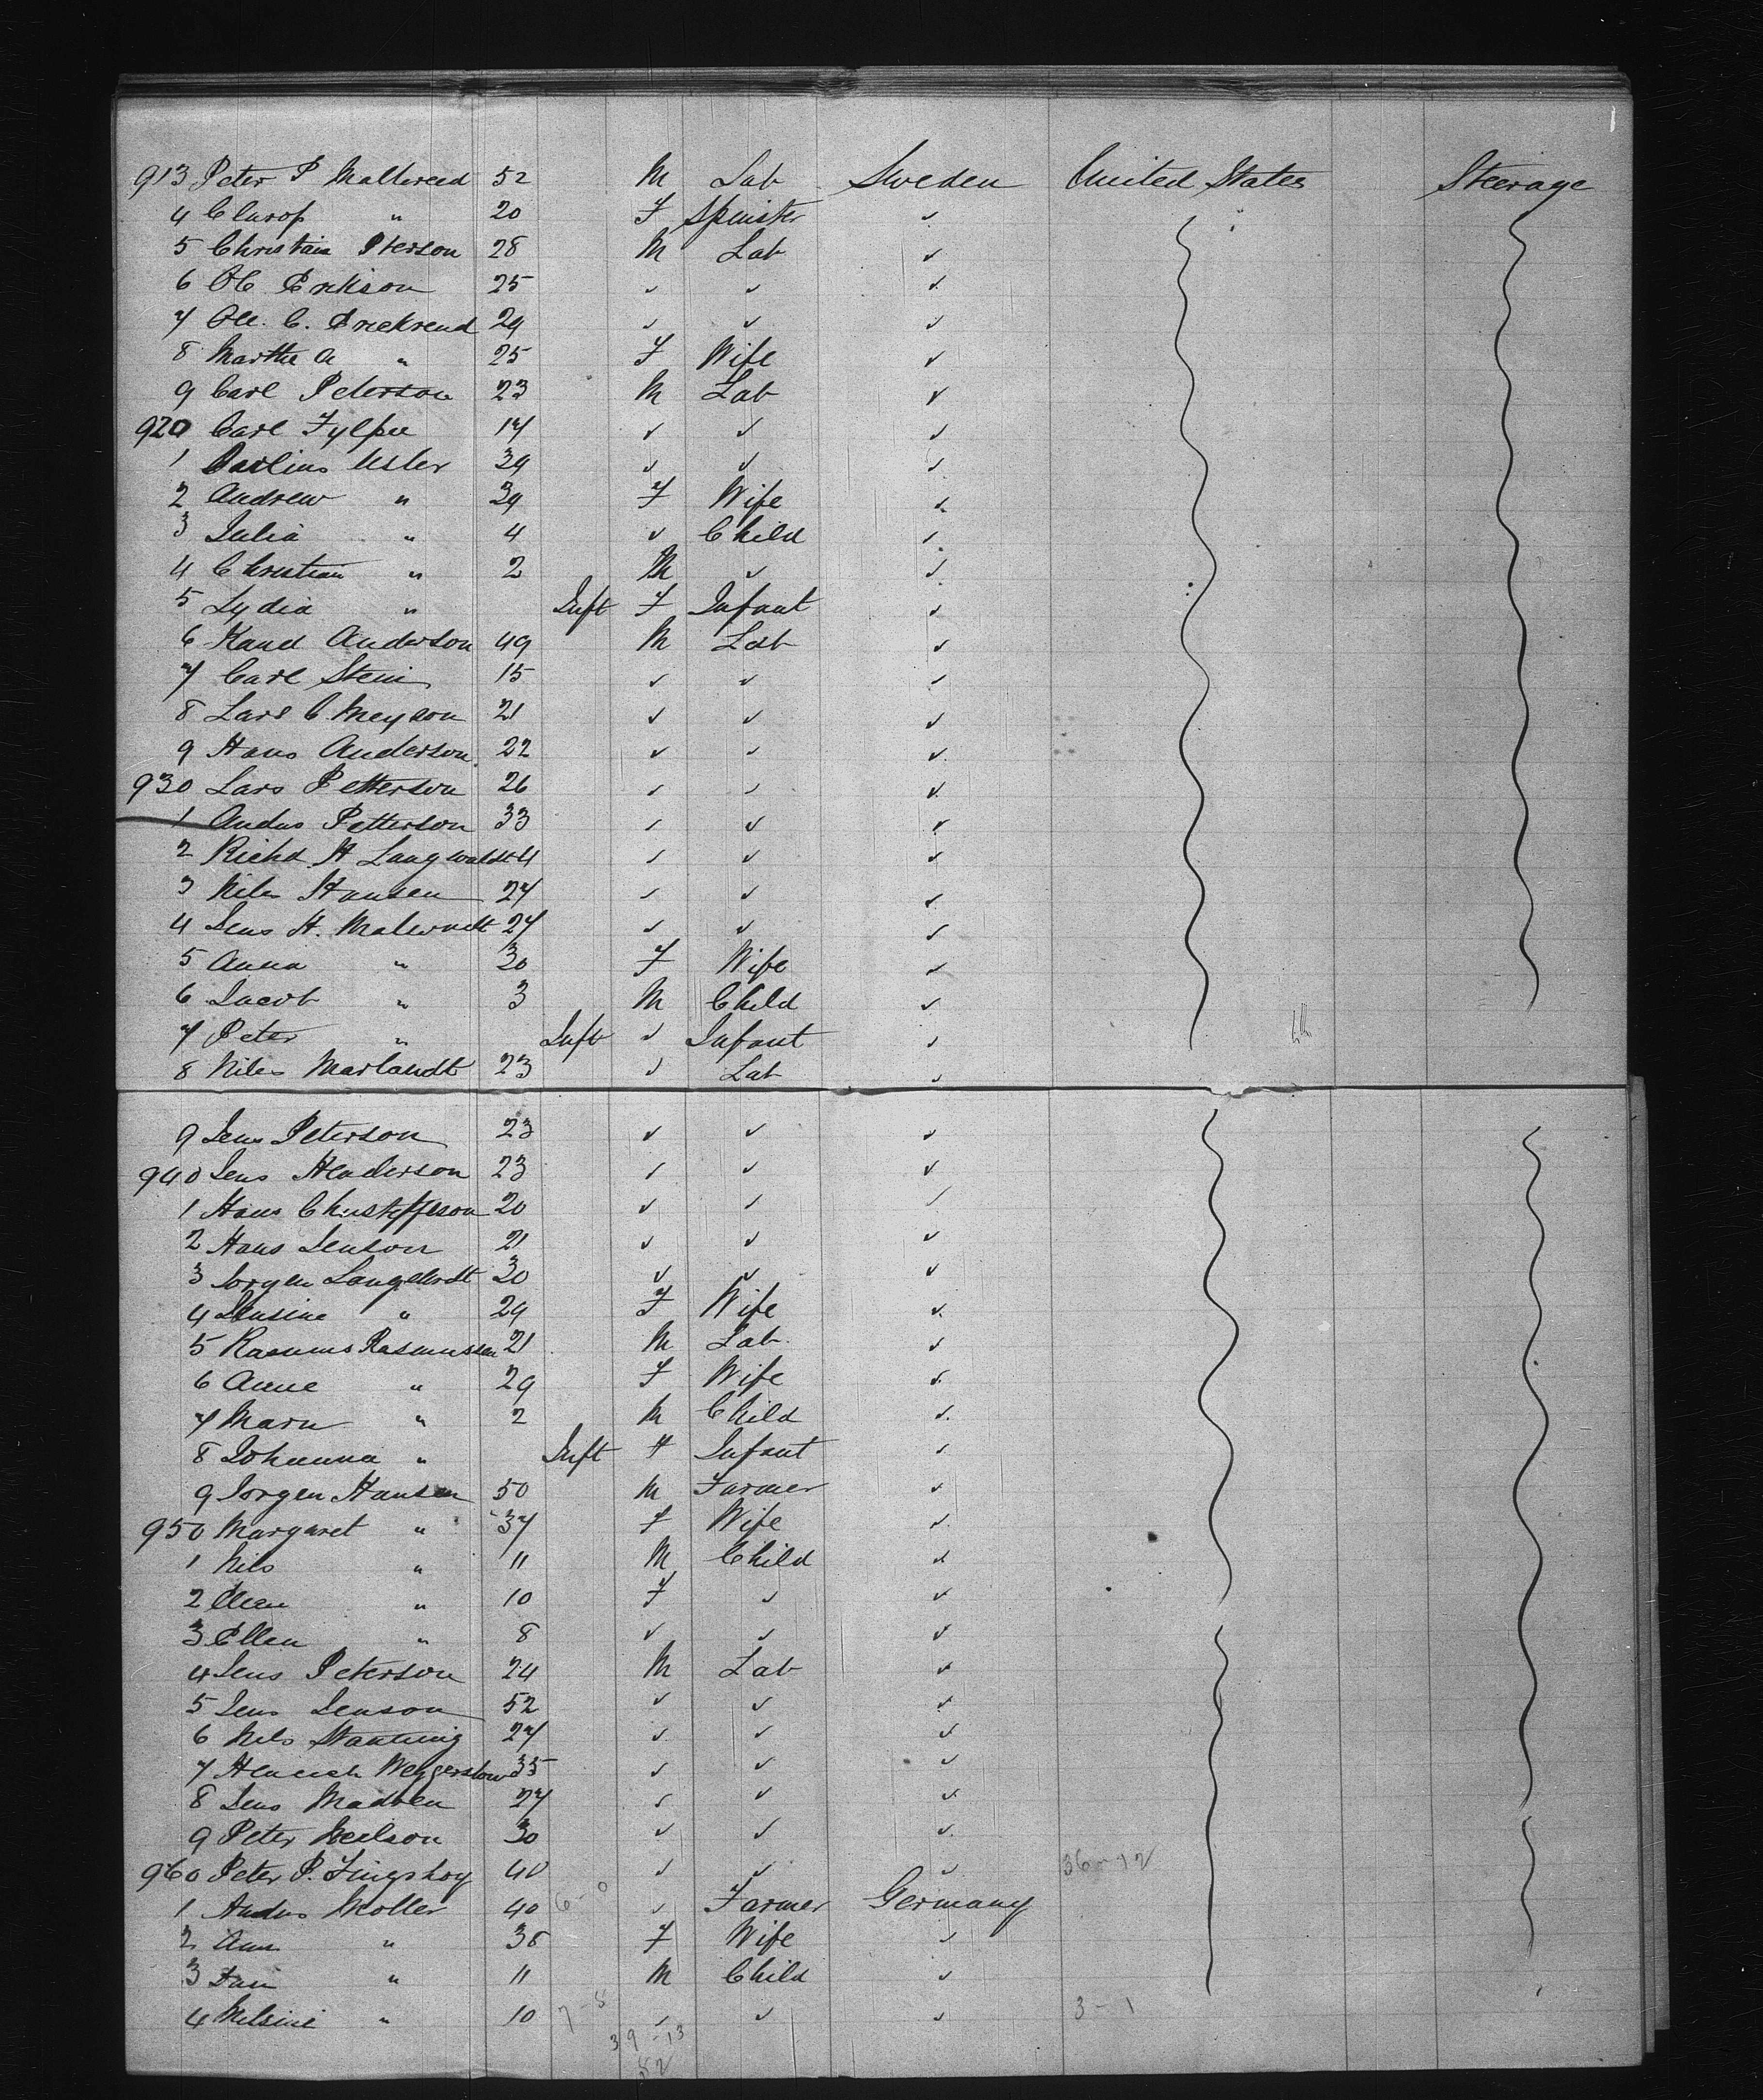 913 Peter P Mallered 52 M Lab Sweden United States Steerage
4 " 20 F Spinster ✓
5 Christain Pterson 28 M Lab ✓
6 Ole Erikson 25 ✓ ✓ ✓
7 Ole. C. 29 ✓ ✓ ✓
8 Martha A " 25 F Wife ✓
9 Carl Peterson 23 M Lab ✓
920 Carl 17 ✓ ✓ ✓
1 39 ✓ ✓ ✓
2 Andrew " 39 F Wife ✓
3 Julia " 4 ✓ Child ✓
4 Christian " 2 M ✓ ✓
5 Lydia " Inft F Infant ✓
6 Kand Anderson 49 M Lab ✓
7 Carl Stein 15 ✓ ✓ ✓
8 Lars C. Meyson 21 ✓ ✓ ✓
9 Hans Anderson 22 ✓ ✓ ✓
930 Lars Petterson 26 ✓ ✓ ✓
1 Andus Petterson 33 ✓ ✓ ✓
2 Richd H ✓ ✓ ✓
3 Niles Hansen 27 ✓ ✓ ✓
4 Jens H. 27 ✓ ✓ ✓
5 Anna " 30 F Wife ✓
6 Jacob " 3 M Child ✓
7 Peter " Inft ✓ Infant ✓
8 Niles Marlandt 23 ✓ Lab ✓
9 Jens Peterson 23 ✓ ✓ ✓
940 Jens Henderson 23 ✓ ✓ ✓
1 Hans Christofferson 20 ✓ ✓ ✓
2 Hans Jenson 21 ✓ ✓ ✓
3 Jorgen 30 ✓ ✓ ✓
4 Jensine " 29 F Wife ✓
5 Rasmus Rasmussen 21 M Lab. ✓
6 Anne " 29 F Wife ✓
7 Marn " 2 M Child ✓
8 Johanna " Inft F Infant ✓
9 Jorgen Hansen 50 M Farmer ✓
950 Margaret " 37 F Wife ✓
1 Nils " 11 M Child ✓
2 " 10 F ✓ ✓
3 Ellen " 8 ✓ ✓ ✓
4 Jens Peterson 24 M Lab ✓
5 Jens Jenson 52 ✓ ✓ ✓
6 Nels 27 ✓ ✓ ✓
7 35 ✓ ✓ ✓
8 Jens Madsen 27 ✓ ✓ ✓
9 Peter Neilson 30 ✓ ✓ ✓
960 Peter P. 40 ✓ ✓ ✓ 36-12
1 Andus Moller 40 6-0 ✓ Farmer Germany
2 Ann " F Wife ✓
3 " 11 M Child ✓
4 Nelsine " 10 7-8 ✓ ✓ ✓ 3-1
39-13
52